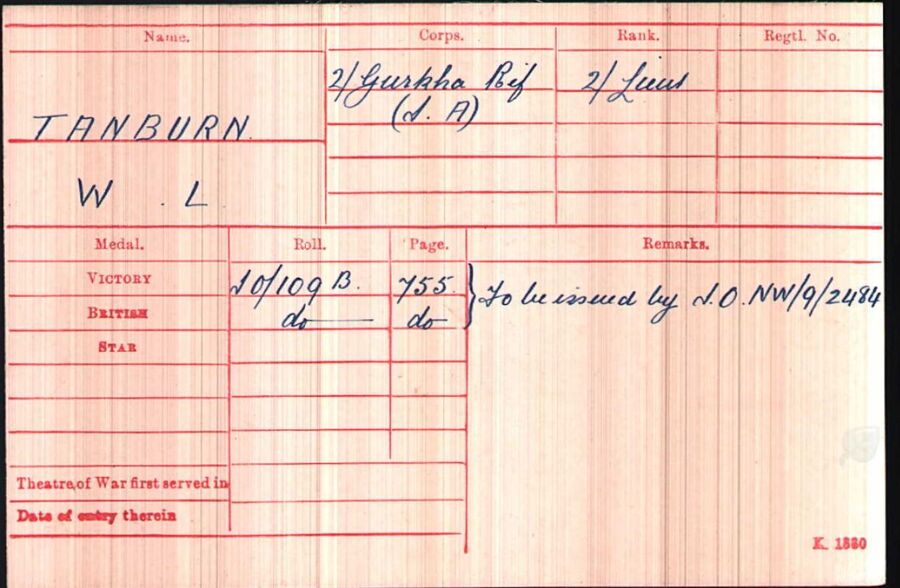 Name. Corps. Rank. Regtl. No.
2/Gurkha Rif 2/Lieut
(I. A)
TANBURN.
W . L
Medal. Roll. Page. Remarks.
VICTORY IO/109 B. 755. } To be issued by I.O. NW/9/2484
BRITISH do do
STAR
Theatre of War first served in
Date of entry therein
K. 1380